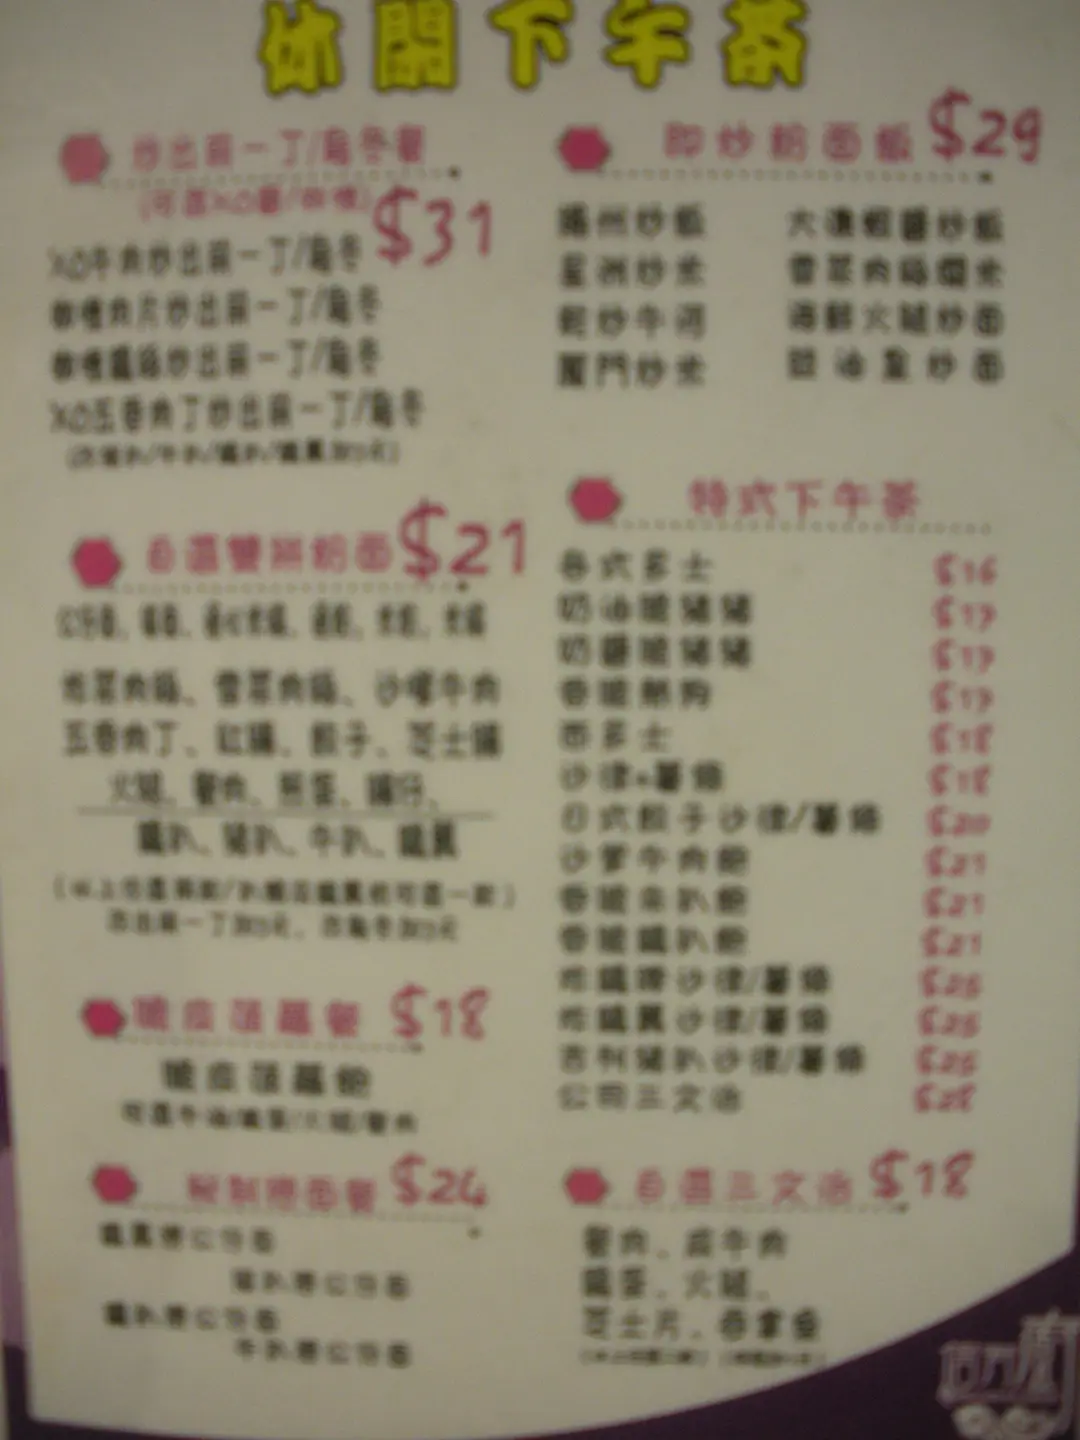 休閒下午茶
炒出前一丁/烏冬餐
$31
XO牛肉炒出前一丁/烏冬
肉片炒出前一丁/烏冬
炒出前一丁/烏冬
XO五香肉丁炒出前一丁/烏冬
自選雙拼粉面 $21
榨菜肉絲、雪菜肉絲、沙嗲牛肉
五香肉丁、紅腸、餃子、芝士腸
火腿、蟹肉、煎蛋、腸仔、
雞扒、豬扒、牛扒、雞翼
脆皮菠蘿餐 $18
脆皮菠蘿飽
秘制撈面餐 $24
雞翼撈公仔面
豬扒撈公仔面
雞扒撈公仔面
牛扒撈公仔面
即炒粉面飯 $29
揚州炒飯 大澳蝦醬炒飯
星洲炒米 雪菜肉絲燜米
乾炒牛河 海鮮火腿炒面
廈門炒米 豉油皇炒面
特式下午茶
各式多士 $16
奶油脆豬豬 $17
奶醬脆豬豬 $17
香脆熱狗 $17
西多士 $18
沙律+薯條 $18
日式餃子沙律/薯條 $20
沙爹牛肉飽 $21
香脆魚扒飽 $21
香脆雞扒飽 $21
炸雞髀沙律/薯條 $25
炸雞翼沙律/薯條 $25
吉列豬扒沙律/薯條 $25
公司三文治 $28
自選三文治 $18
蟹肉、咸牛肉
雞蛋、火腿、
芝士片、吞拿魚